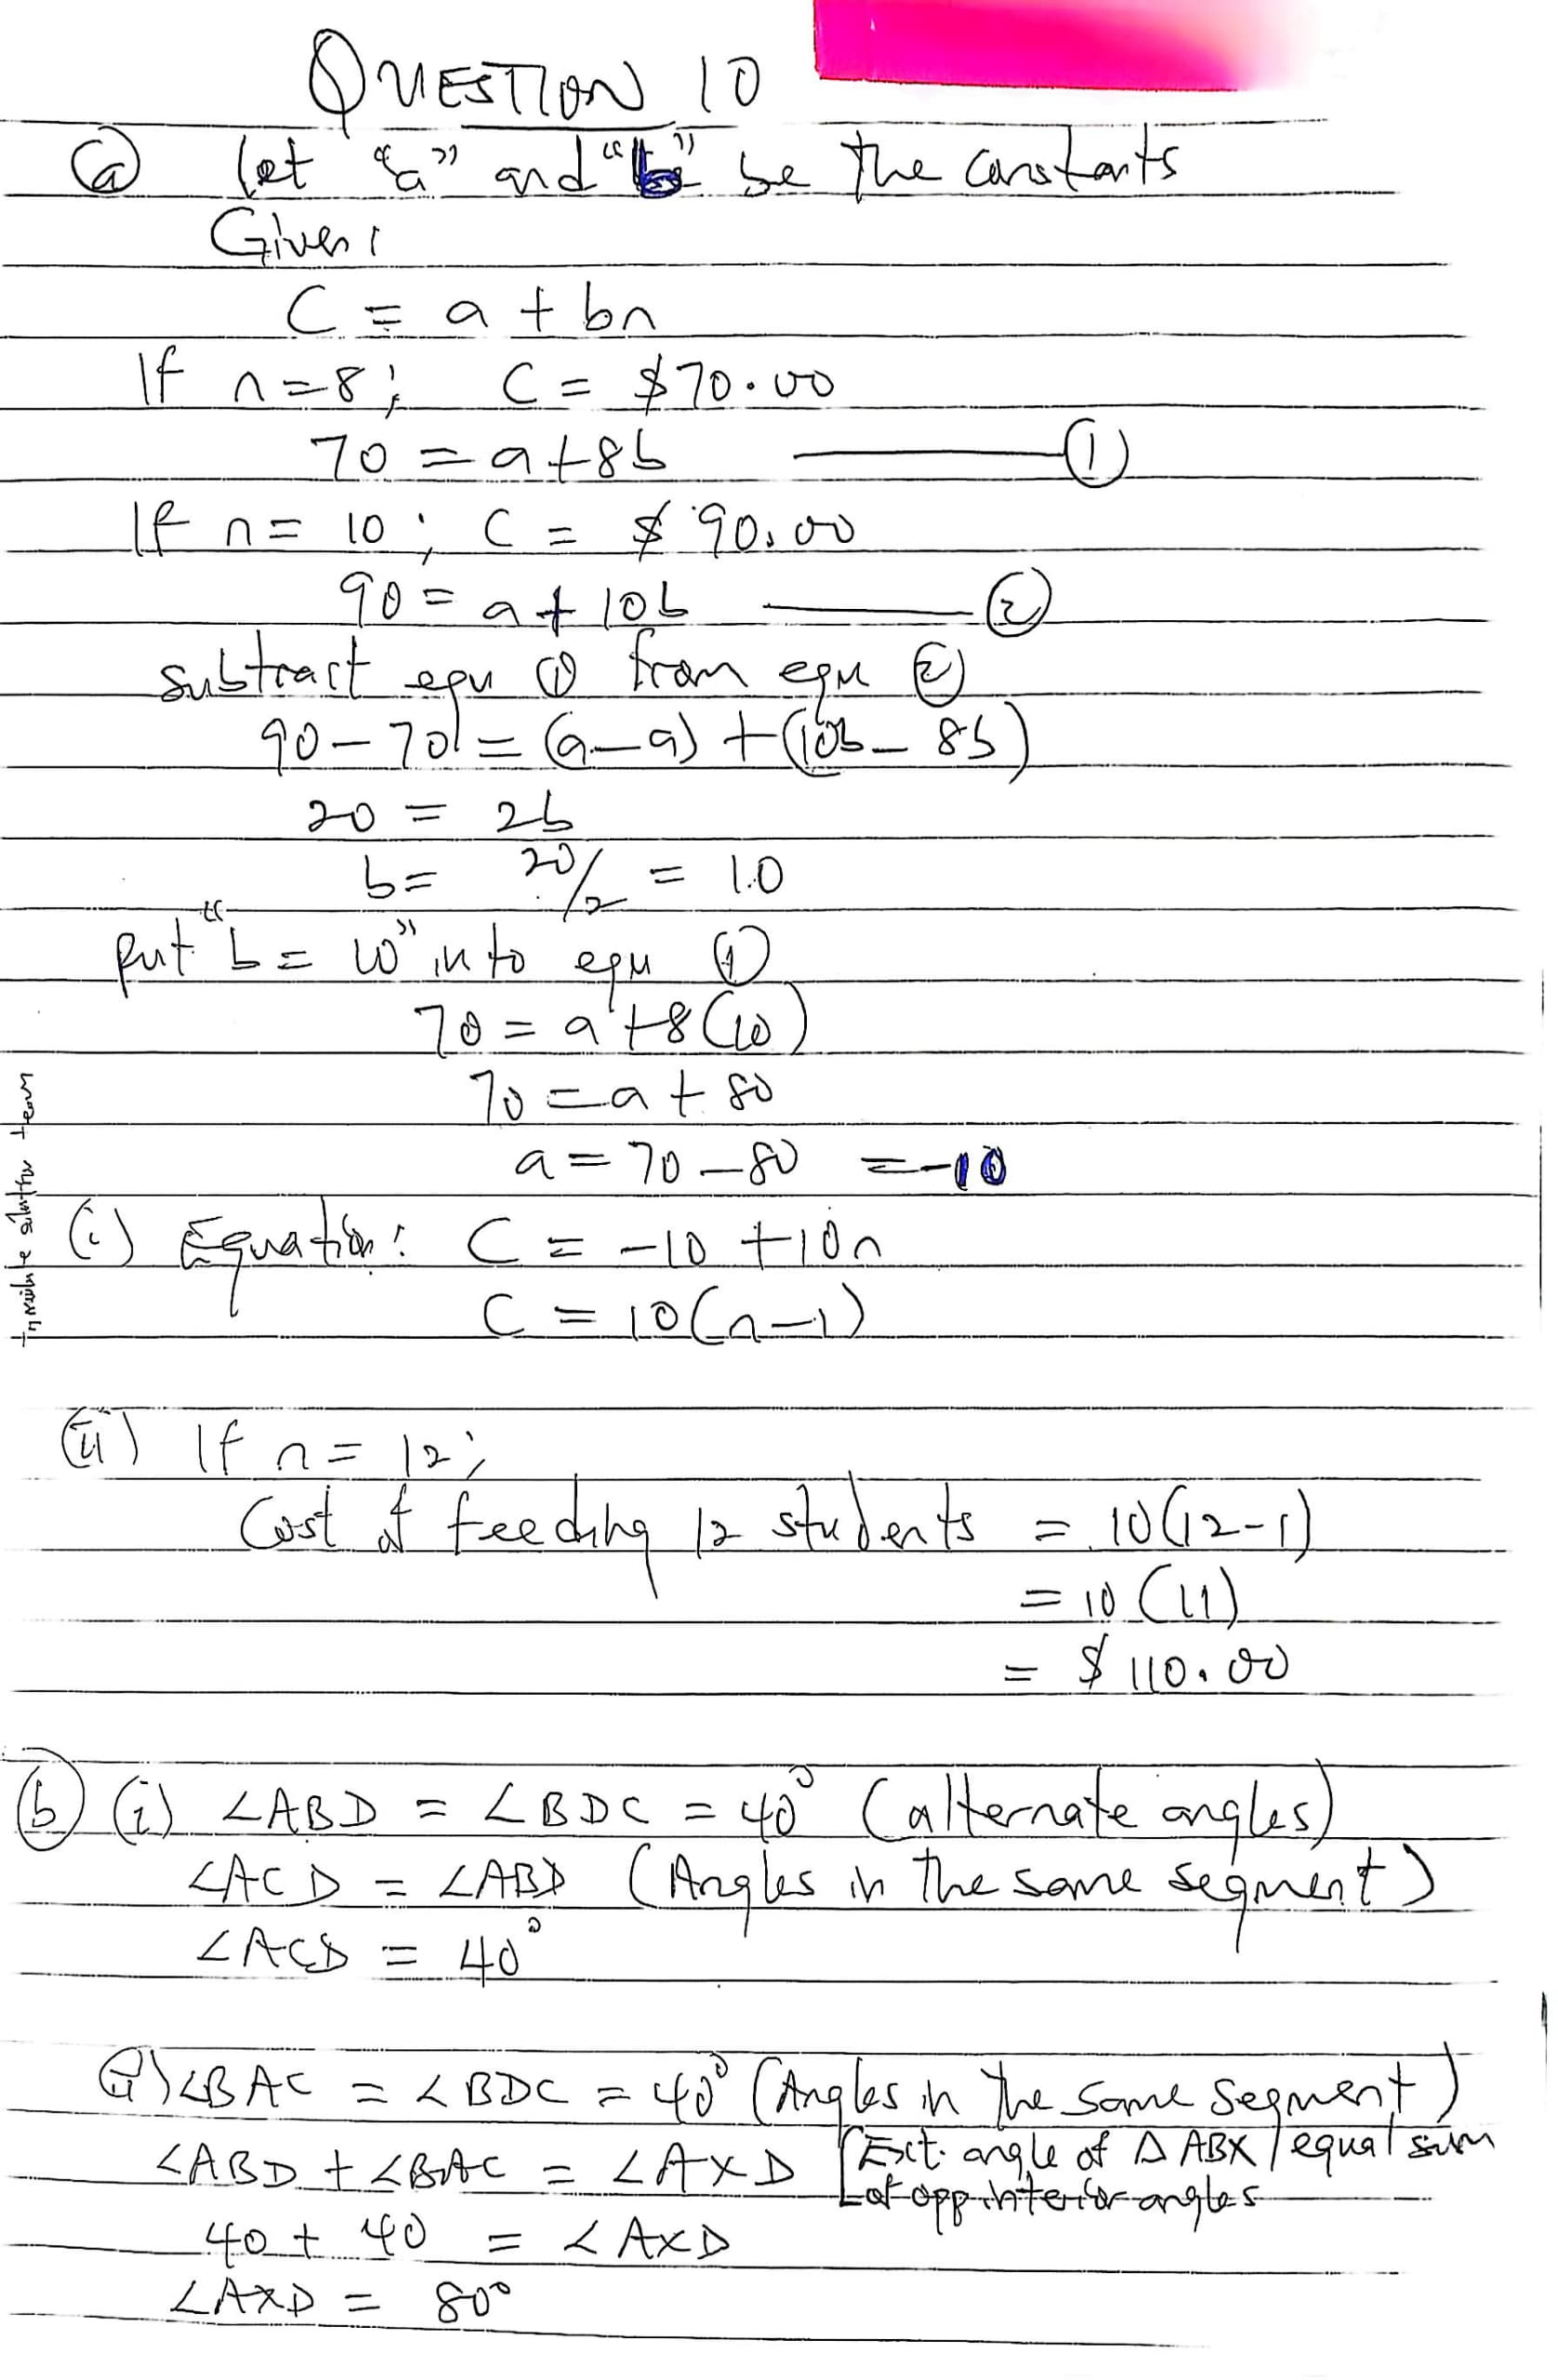 QUESTION 10
(a) Let "a" and "b" be the constants
Given:
C = a + bn
If n=8; C = $70.00
70 = a+8b ——— (1)
If n= 10; C = $ 90.00
90 = a + 10b ——— (2)
subtract equ (1) from equ (2)
90 – 70 = (a–a) + (10b – 8b)
20 = 2b
b= 20/2 = 10
put "b = 10" into equ (1)
70 = a +8(10)
70 = a + 80
a = 70 – 80 = –10
(i) Equation: C = –10 +10n
C = 10(n–1)
(ii) If n= 12;
Cost of feeding 12 students = 10(12–1)
= 10 (11)
= $ 110.00
(b) (i) ∠ABD = ∠BDC = 40° (alternate angles)
∠ACD = ∠ABD (Angles in the same segment)
∠ACD = 40°
(ii) ∠BAC = ∠BDC = 40° (Angles in the same segment)
∠ABD + ∠BAC = ∠AXD [Ext. angle of Δ ABX equal sum
of opp interior angles
40 + 40 = ∠AXD
∠AXD = 80°